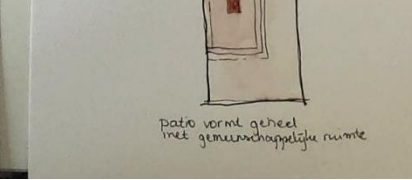 patio vormt geheel
met gemeenschappelijke ruimte